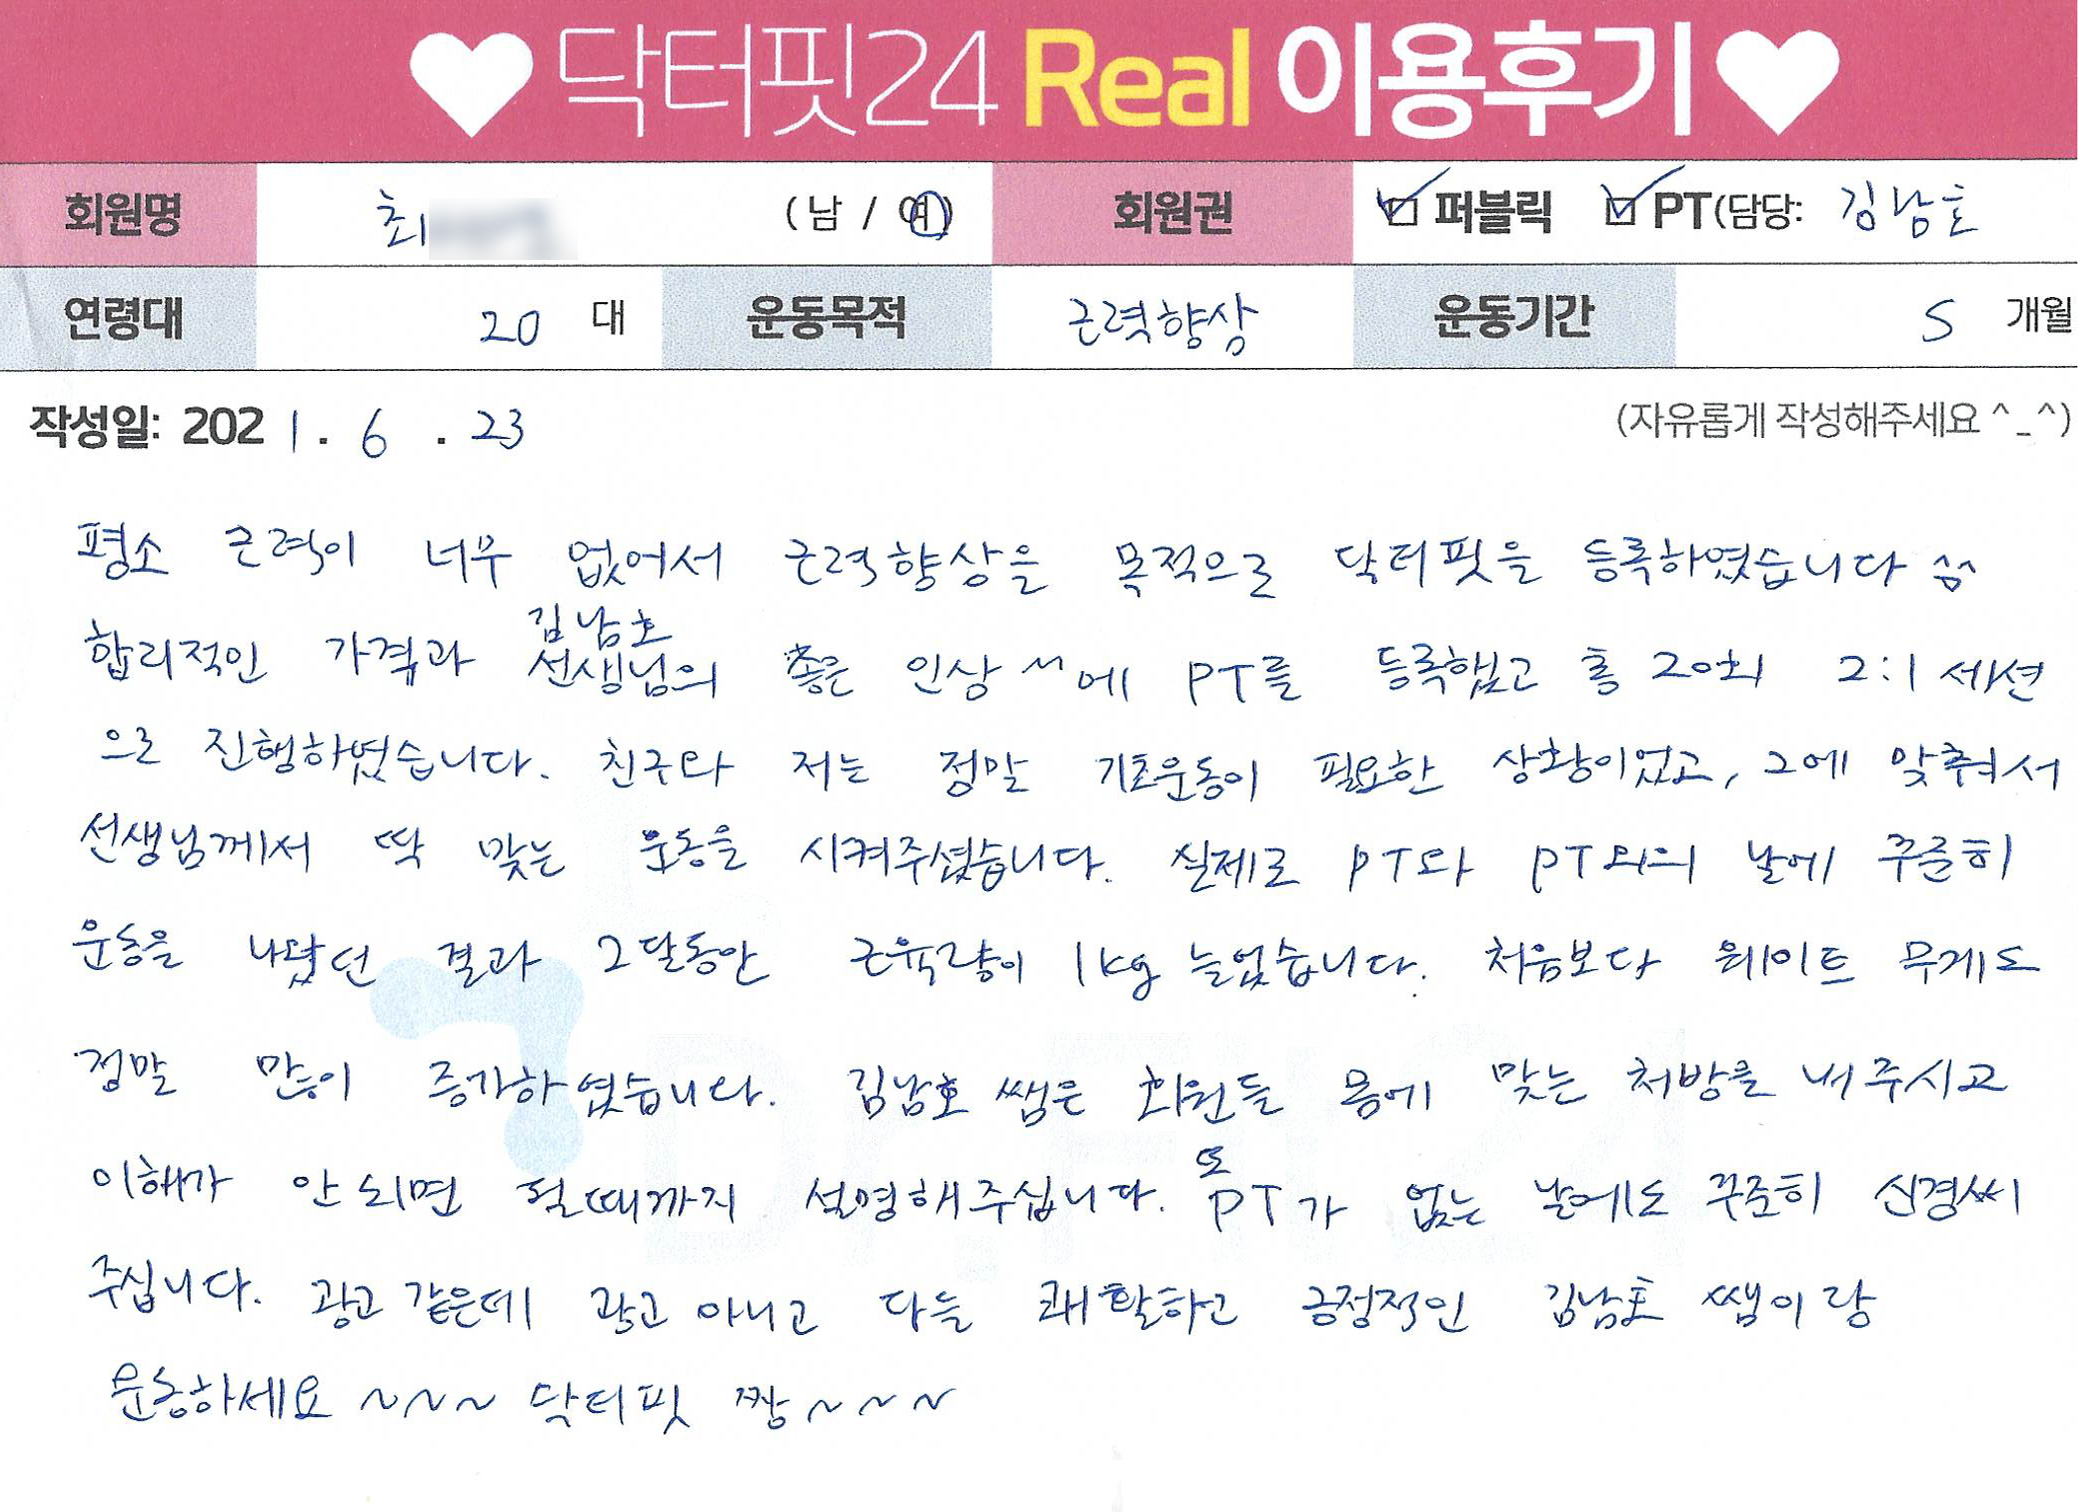 ♥닥터핏24 Real 이용후기♥
회원명 최 (남 / 여) 회원권 ☑ 퍼블릭 ☑ PT(담당: 김남호
연령대 20 대 운동목적 근력향상 운동기간 5 개월
작성일: 2021. 6. 23 (자유롭게 작성해주세요 ^_^)
평소 근력이 너무 없어서 근력향상을 목적으로 닥터핏을 등록하였습니다 ^^
합리적인 가격과 김남호 선생님의 좋은 인상 ^^에 PT를 등록했고 총 20회 2:1 세션
으로 진행하였습니다. 친구와 저는 정말 기초운동이 필요한 상황이었고, 그에 맞춰서
선생님께서 딱 맞는 운동을 시켜주셨습니다. 실제로 PT와 PT외의 날에 꾸준히
운동을 나왔던 결과 2달동안 근육량이 1kg 늘었습니다. 처음보다 웨이트 무게도
정말 많이 증가하였습니다. 김남호 쌤은 회원들 몸에 맞는 처방을 내주시고
이해가 안되면 될때까지 설명해주십니다. 또 PT가 없는 날에도 꾸준히 신경써
주십니다. 광고 같은데 광고 아니고 다들 쾌활하고 긍정적인 김남호 쌤이랑
운동하세요 ~~~ 닥터핏 짱~~~
Dr.Fit24